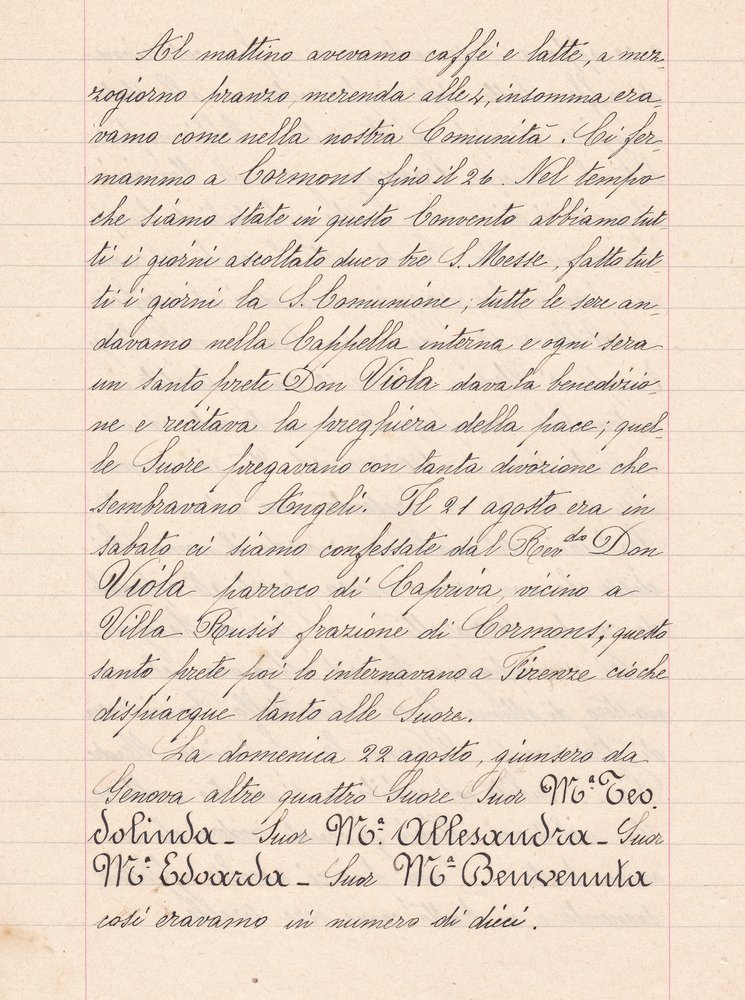 Al mattino avevamo caffè e latte, a mez-
zogiorno pranzo, merenda alle 4, insomma era-
vamo come nella nostra Comunità. Ci fer-
mammo a Cormons fino il 26. Nel tempo
che siamo state in questo Convento abbiamo tut-
ti i giorni ascoltato due o tre S. Messe, fatto tut
ti i giorni la S. Comunione; tutte le sere an-
davamo nella Cappella interna e ogni sera
un santo prete Don Viola dava la benedizio-
ne e recitava la preghiera della pace; quel-
le Suore pregavano con tanta divozione che
sembravano Angeli. Il 21 agosto era in
sabato ci siamo confessate dal Rev.do Don
Viola parroco di Capriva vicino a
Villa Rusis frazione di Cormons; questo
santo prete poi lo internavano a Firenze ciò che
dispiacque tanto alle Suore.
La domenica 22 agosto, giunsero da
Genova altre quattro Suore Suor M.a Teo.
dolinda - Suor M.a Allesandra - Suor
M.a Edoarda - Suor M.a Benvenuta
così eravamo in numero di dieci.